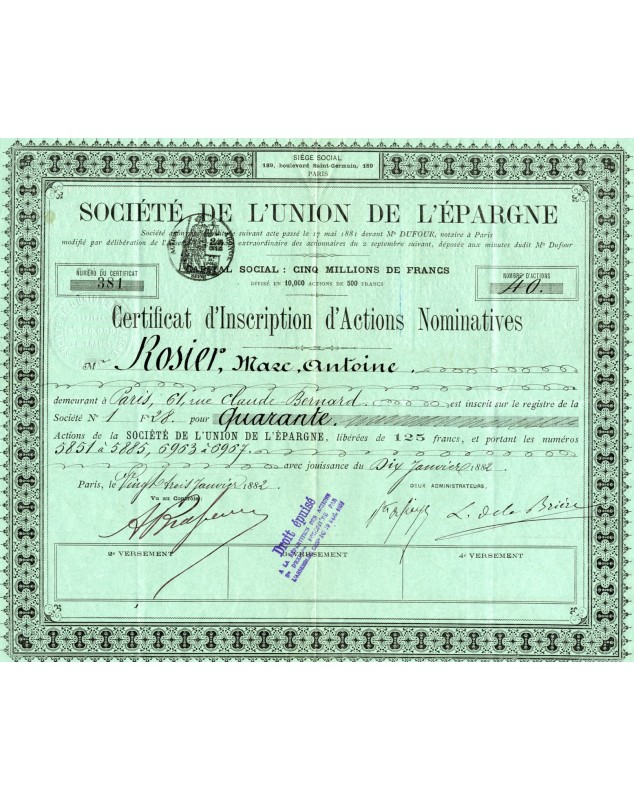 SIÈGE SOCIAL
189, boulevard Saint-Germain, 189
PARIS
SOCIÉTÉ DE L'UNION DE L'ÉPARGNE
Société suivant acte passé le 17 mai 1881 devant Mᵉ DUFOUR, notaire à Paris
modifié par délibération de l' extraordinaire des actionnaires du 2 septembre suivant, déposée aux minutes dudit Mᵉ Dufour
CAPITAL SOCIAL : CINQ MILLIONS DE FRANCS
DIVISÉ EN 10,000 ACTIONS DE 500 FRANCS
NUMÉRO DU CERTIFICAT
381
NOMBRE D'ACTIONS
40.
Certificat d'Inscription d'Actions Nominatives
Mʳ Rosier, Marc, Antoine
demeurant à Paris, 61, rue Claude Bernard est inscrit sur le registre de la
Société Nº 1 Fº 28. pour Quarante.
Actions de la SOCIÉTÉ DE L'UNION DE L'ÉPARGNE, libérées de 125 francs, et portant les numéros
5851 à 5885, 6963 à 6967.
avec jouissance du Dix Janvier 1882.
Paris, le Vingt trois janvier 1882.
Vu au Contrôle
DEUX ADMINISTRATEURS,
L. de la Brière
Droit épuisé
2ᵉ VERSEMENT
3ᵉ VERSEMENT
4ᵉ VERSEMENT